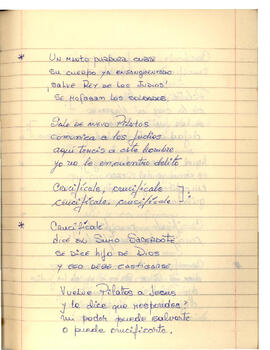 * Un manto púrpura cubre
su cuerpo ya ensangrentado
¡Salve Rey de los Judios!
se mofaban los soldados.
Sale de nuevo Pilatos
comunica a los Judios
aquí teneis a este hombre
yo no le encuentro delito
Crucifícale, crucifícale
crucifícale, crucifícale
* Crucifícale
dice su Sumo Sacerdote
se dice hijo de Dios
y eso debe castigarse
Vuelve Pilatos a Jesus
y le dice que respondes?
mi poder puede salvarte
o puede crucificarte.